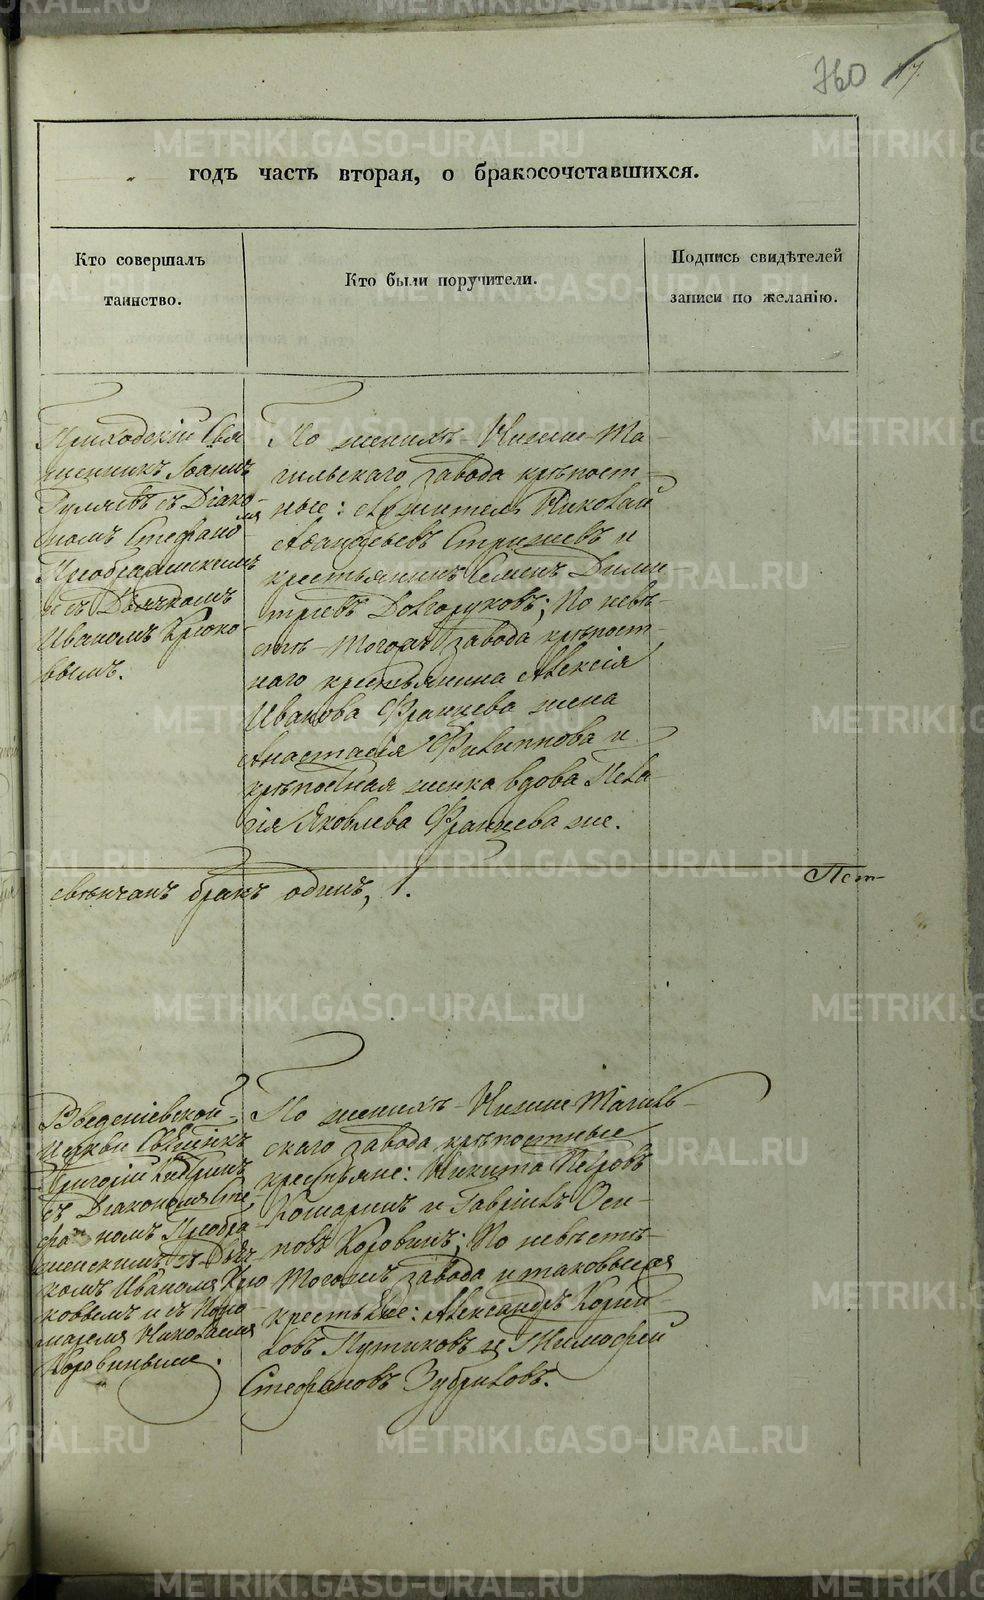 760 17.
годъ часть вторая, о бракосочетавшихся.
Кто совершалъ
таинство.
Кто были поручители.
Подпись свидѣтелей
записи по желанію.
Приходскій Свя
щенникъ Іоаннъ
Гуляевъ съ Діако-
номъ Стефано
мъ
Преображенскимъ
и съ Дьячкомъ
Иваномъ Крюко-
вымъ.
По женихѣ Нижне-Та-
гильскаго завода крѣпост-
ные: Служитель Николай
Авандѣевъ Стрижевъ и
крестьянинъ Семенъ Дими-
тріевъ Долгоруковъ; По невѣ-
стѣ тогожъ завода крѣпост-
наго крестьянина Алексія
Иванова Францева жена
Анастасія Филиппова и
крѣпостная женка вдова Пела-
гія Яковлева Францева же.
свѣнчанъ бракъ одинъ, 1.
Введеніевской
Церкви Свщнкъ
Григорій
съ Діакономъ Сте-
фаномъ Преобра-
женскимъ съ Дьяч-
комъ Иваномъ Крю
ковымъ и съ Поно-
маремъ Николаемъ
Коровинымъ.
По женихѣ Нижне Тагиль-
скаго завода крѣпостные
крестьяне: Никита Петровъ
Кошаринъ и Гавріилъ Оси-
повъ Коровинъ; По невѣстѣ
Тогожъ завода и таковыежъ
крестьяне: Александръ Корни-
ловъ Путиковъ и Тимофей
Стефановъ Зубриловъ.
METRIKI.GASO-URAL.RU